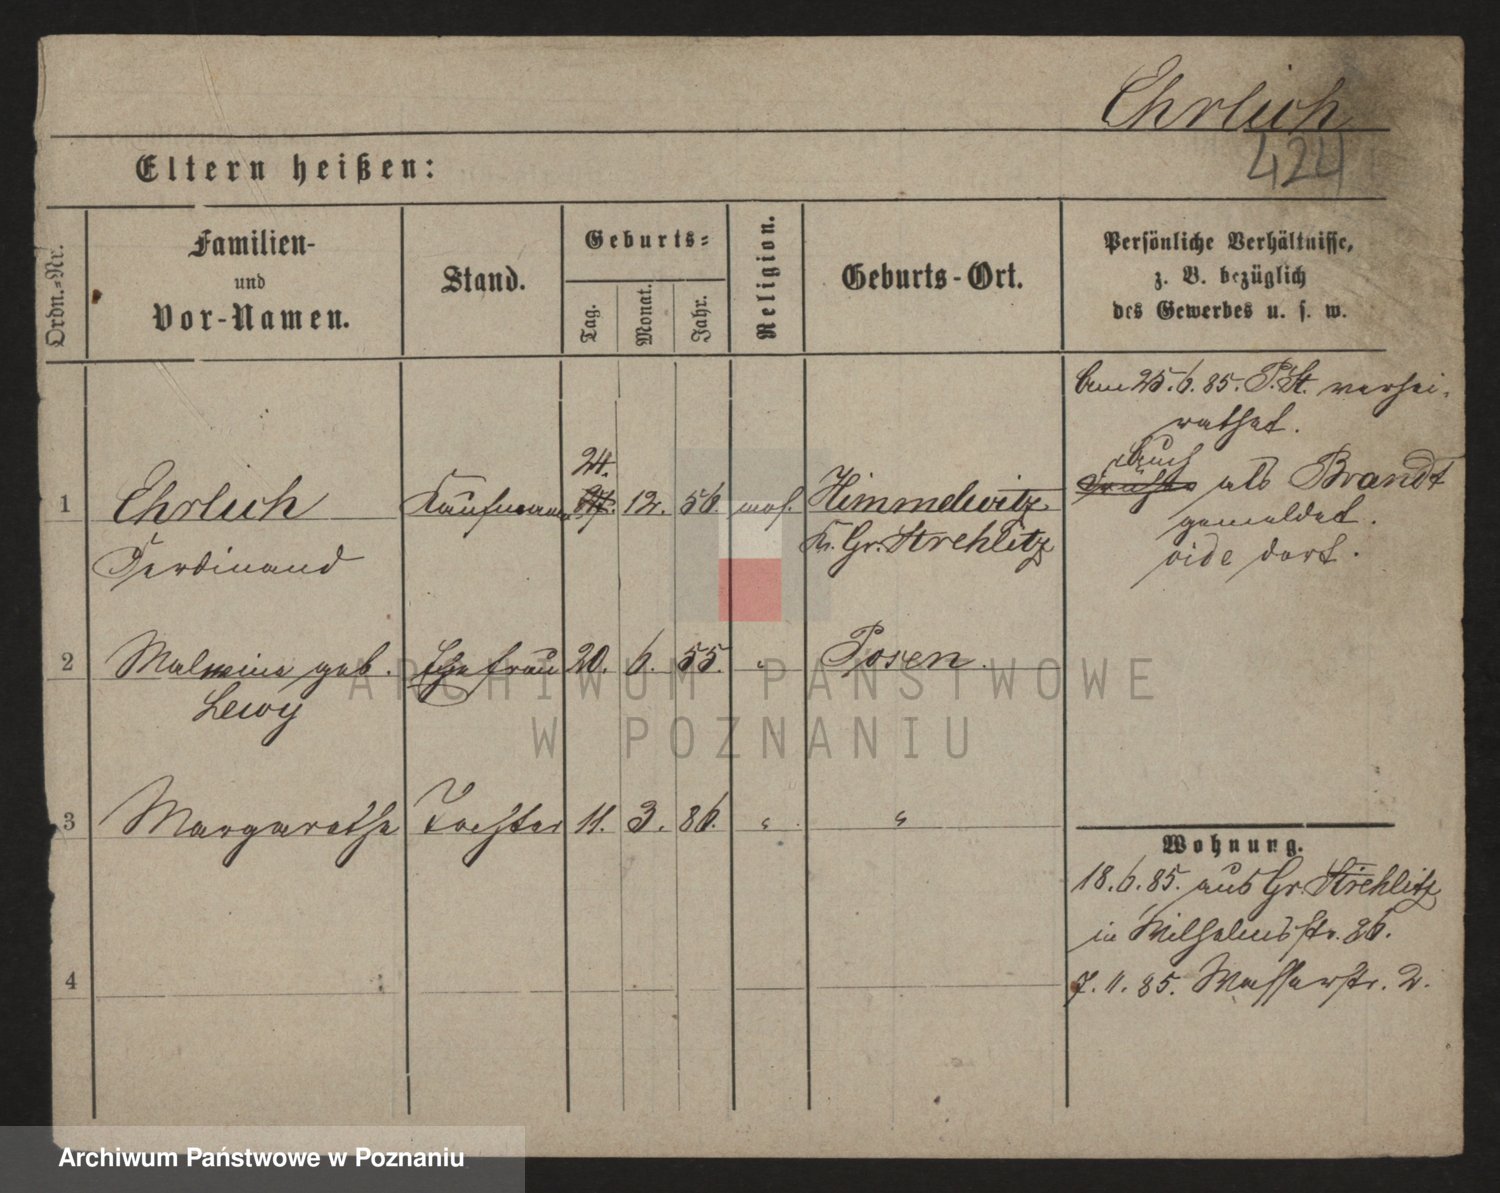 Ehrlich
424
Eltern heißen:
Ordn.-Nr.
Familien-
und
Vor-Namen.
Stand.
Geburts-
Tag.
Monat.
Jahr.
Religion.
Geburts-Ort.
Persönliche Verhältnisse,
z. B. bezüglich
des Gewerbes u. s. w.
am 25.6.85. P.St. verhei-
rathet.
1 Ehrlich Kaufmann 24. 12. 56. mos. Himmelwitz
Ferdinand Kr. Gr. Strehlitz
auch als Brandt
gemeldet.
vide dort.
2 Malwine geb. Ehefrau 20. 6. 55. " Posen.
Lewy
3 Margarethe Tochter 11. 3. 86. " "
4
Wohnung.
18.6.85. aus Gr. Strehlitz
in Wilhelmsstr. 26.
7.11.85. Wasserstr. 2.
ARCHIWUM PAŃSTWOWE
W POZNANIU
Archiwum Państwowe w Poznaniu